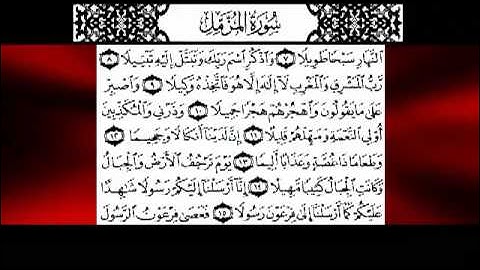 سُورَةُ الْمُزَّمِّل
النَّهَارِ سَبْحًا طَوِيلًا ٧ وَاذْكُرِ اسْمَ رَبِّكَ وَتَبَتَّلْ إِلَيْهِ تَبْتِيلًا ٨
رَّبُّ الْمَشْرِقِ وَالْمَغْرِبِ لَا إِلَٰهَ إِلَّا هُوَ فَاتَّخِذْهُ وَكِيلًا ٩ وَاصْبِرْ
عَلَىٰ مَا يَقُولُونَ وَاهْجُرْهُمْ هَجْرًا جَمِيلًا ١٠ وَذَرْنِي وَالْمُكَذِّبِينَ
أُولِي النَّعْمَةِ وَمَهِّلْهُمْ قَلِيلًا ١١ إِنَّ لَدَيْنَا أَنكَالًا وَجَحِيمًا ١٢
وَطَعَامًا ذَا غُصَّةٍ وَعَذَابًا أَلِيمًا ١٣ يَوْمَ تَرْجُفُ الْأَرْضُ وَالْجِبَالُ
وَكَانَتِ الْجِبَالُ كَثِيبًا مَّهِيلًا ١٤ إِنَّا أَرْسَلْنَا إِلَيْكُمْ رَسُولًا شَاهِدًا
عَلَيْكُمْ كَمَا أَرْسَلْنَا إِلَىٰ فِرْعَوْنَ رَسُولًا ١٥ فَعَصَىٰ فِرْعَوْنُ الرَّسُولَ